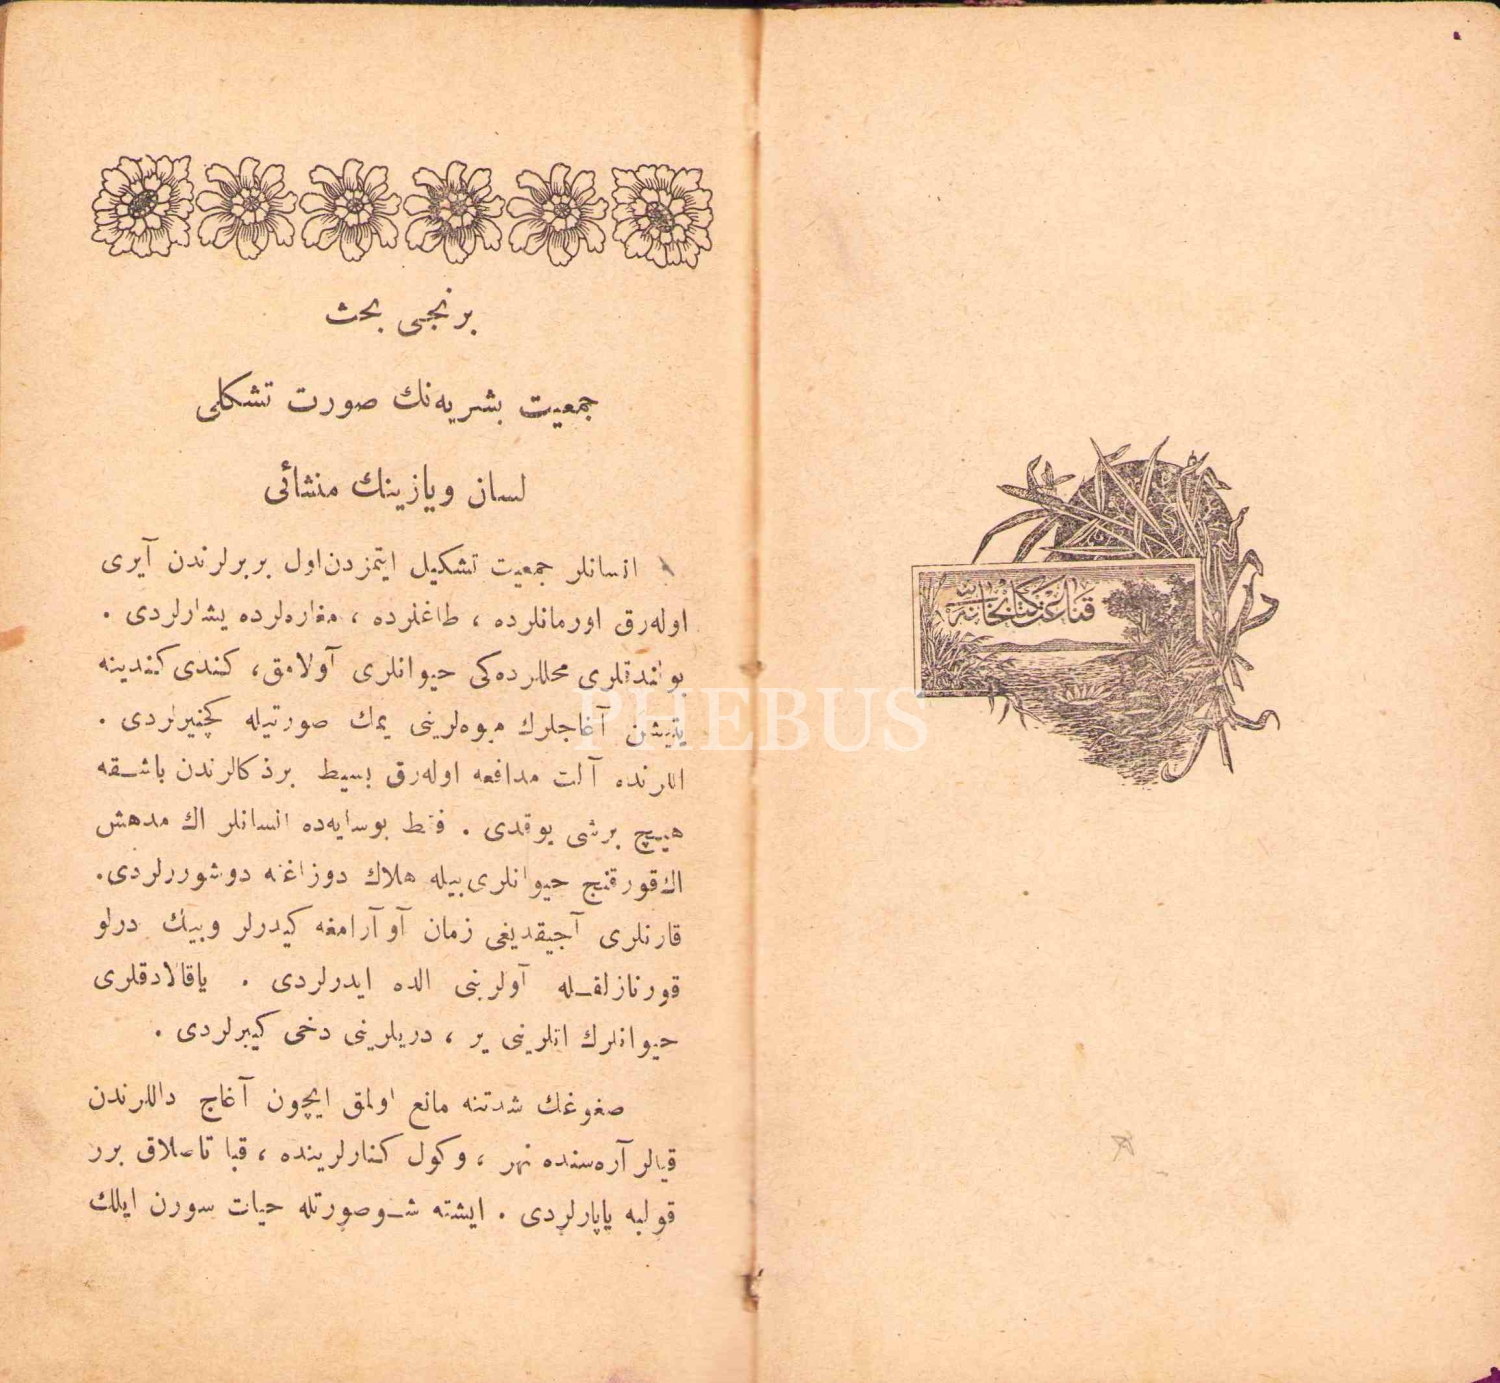 قناعت کتابخانه‌سی
برنجی بحث
جمعیت بشریه‌نك صورت تشکلی
لسان ویازینك منشائی
انسانلر جمعیت تشکیل ایتمزدن اول بربرلرندن آیری
اوله‌رق اورمانلرده ، طاغلرده ، مغاره‌لرده یشارلردی .
بولندقلری محللرده‌کی حیوانلری آولامق، کندی کندینه
یتیشن آغاجلرك میوه‌لرینی یمك صورتیله کچنیرلردی .
اللرنده آلت مدافعه اوله‌رق بسیط برذکالرندن باشقه
هیچ برشی یوقدی . فقط بوسایه‌ده انسانلر اك مدهش
اك قورقنج حیوانلری بیله هلاك دوزاغنه دوشوررلردی.
قارنلری آجیقدیغی زمان آو آرامغه کیدرلر وبیك درلو
قورنازلقله آولرینی الده ایدرلردی . یاقالادقلری
حیوانلرك اتلرینی یر ، دریلرینی دخی کییرلردی .
صغوغك شدتنه مانع اولمق ایچون آغاج داللرندن
قیالر آره‌سنده نهر ، وکول کنارلرینده ، قبا تاصلاق برر
قولبه یاپارلردی . ایشته شوصورتله حیات سورن ایلك
PHEBUS